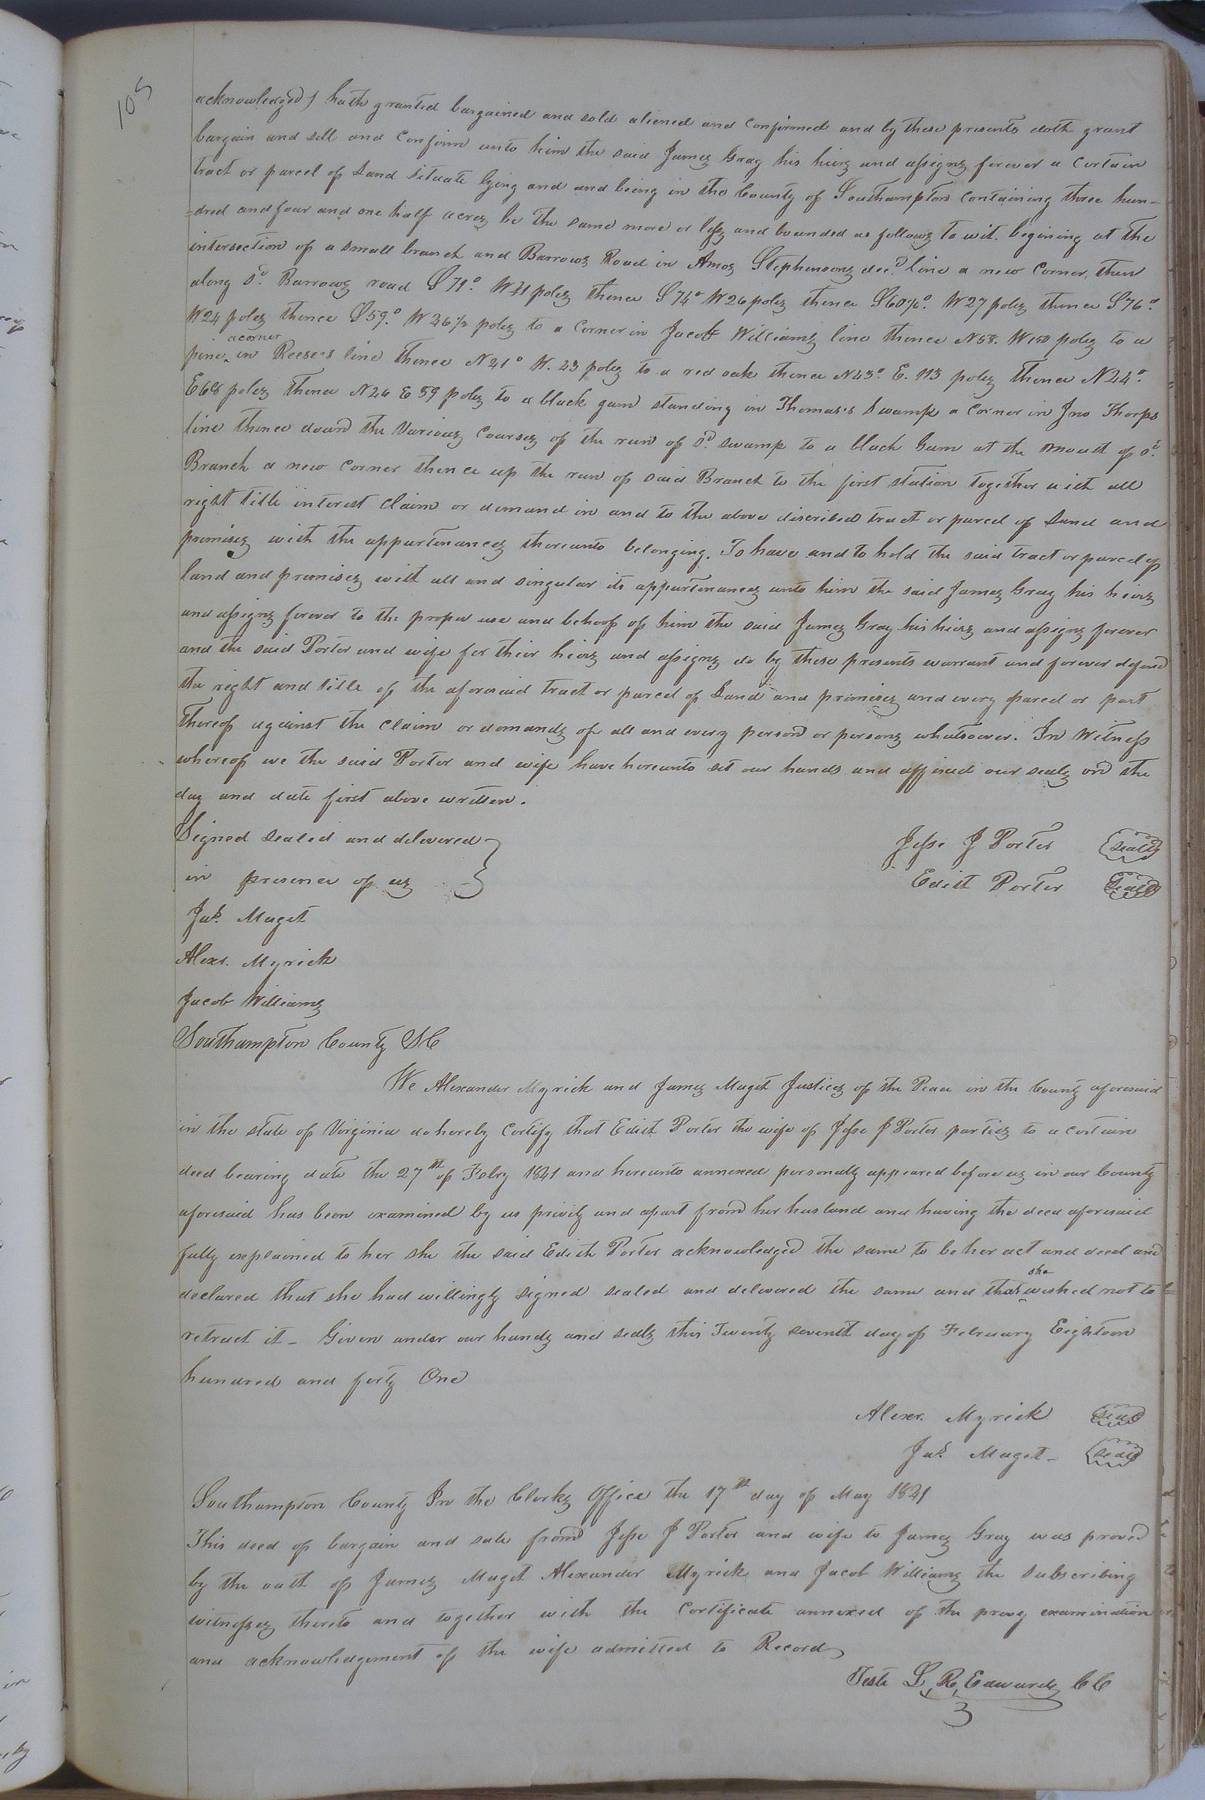 105
acknowledged) hath granted bargained and sold aliened and confirmed and by these presents doth grant
bargain and sell and confirm unto him the said James Gray his heirs and assigns forever a certain
tract or parcel of Land situate lying and and being in the County of Southampton containing three hun-
=dred and four and one half acres be the same more or less and bounded as follows to wit. begining at the
intersection of a small branch and Barrows Road in Amos Stephensons decd. line a new corner, then
along sd. Barrows road S 71°. W 41 poles thence S 74° W 26 poles thence S 60½°. W 27 poles thence S 76°
W 24 poles thence S 59°. W 36½ poles to a corner in Jacob Williams line thence N 58. W 150 poles to a
pine a corner in Reese's line thence N 21° W. 23 poles to a red oak thence N 43° E. 113 poles thence N 24°.
E 68 poles thence N 26 E 59 poles to a black gum standing in Thomas's Swamp a corner in Jno Thorps
line thence down the various courses of the run of sd. swamp to a black Gum at the mouth of sd.
Branch a new corner thence up the run of said Branch to the first station together with all
right title interest claim or demand in and to the above discribed tract or parcel of Land and
premises with the appurtenances thereunto belonging. To have and to hold the said tract or parcel of
land and premises with all and singular its appurtenances unto him the said James Gray his heirs
and assigns forever to the proper use and behoof of him the said James Gray his heirs and assigns forever
and the said Porter and wife for their heirs and assigns do by these presents warrant and forever defend
the right and title of the aforesaid tract or parcel of Land and premises and every parcel or part
thereof against the claim or demands of all and every person or persons whatsoever. In Witness
whereof we the said Porter and wife have hereunto set our hands and affixed our seals on the
day and date first above written.
Signed sealed and delivered
in presence of us
Jesse J Porter seal
Edith Porter seal
Jas. Maget
Alexr. Myrick
Jacob Williams
Southampton County SC
We Alexander Myrick and James Maget Justices of the Peace in the County aforesaid
in the state of Virginia do hereby certify that Edith Porter the wife of Jesse J Porter parties to a certain
deed bearing date the 27th of Feby 1841 and hereunto annexed personally appeared before us in our County
aforesaid has been examined by us privily and apart from her husband and having the deed aforesaid
fully explained to her she the said Edith Porter acknowledged the same to be her act and deed and
declared that she had willingly signed sealed and delivered the same and that she wished not to
retract it - Given under our hands and seals this Twenty seventh day of February Eighteen
hundred and forty One
Alexr. Myrick seal
Jas. Maget - seal
Southampton County In the Clerks Office the 17th day of May 1841
This deed of bargain and sale from Jesse J Porter and wife to James Gray was proved
by the oath of James Maget Alexander Myrick and Jacob Williams the subscribing
witnesses thereto and together with the certificate annexed of the privy examination
and acknowledgement of the wife admitted to Record
Teste L. R. Edwards CC